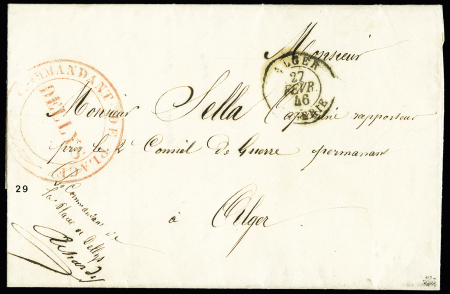 Monsieur
ALGER
27
FEVR.
46
COMMANDANT DE PLACE
DELLYS
Monsieur Sella Capitaine rapporteur
près le 2e Conseil de Guerre permanan
à Alger
29
Le Commandant de
la Place de Dellys